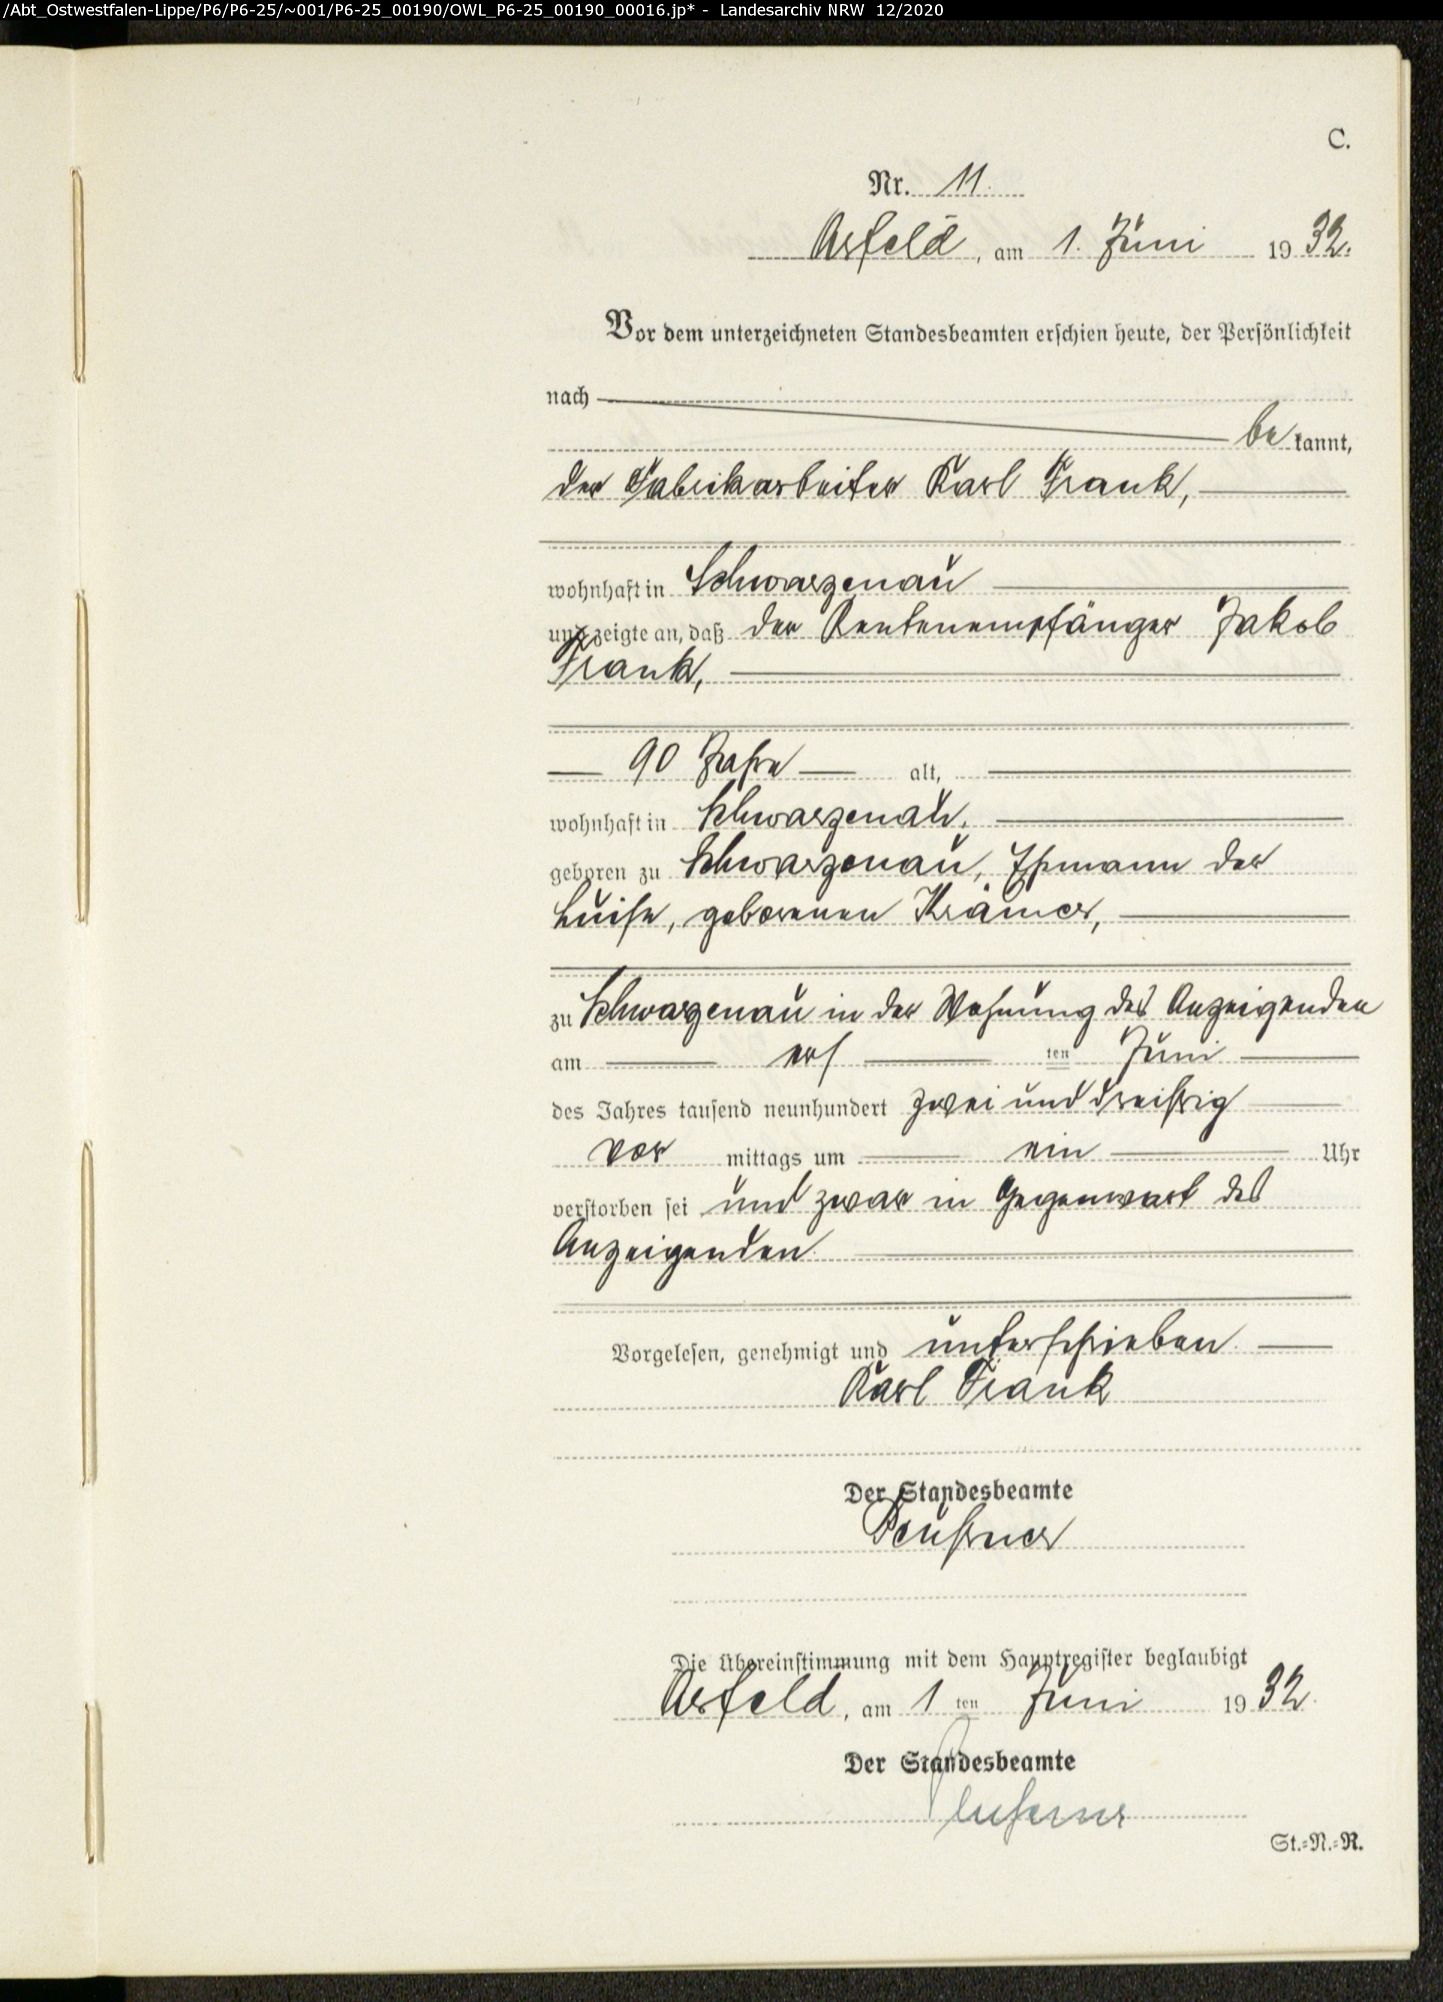 /Abt_Ostwestfalen-Lippe/P6/P6-25/~001/P6-25_00190/OWL_P6-25_00190_00016.jp* - Landesarchiv NRW 12/2020
C.
Nr. 11.
Arfeld, am 1. Juni 1932.
Vor dem unterzeichneten Standesbeamten erschien heute, der Persönlichkeit
nach
be kannt,
der Fabrikarbeiter Karl Frank,
wohnhaft in Schwarzenau
und zeigte an, daß der Rentenempfänger Jakob
Frank,
90 Jahre alt,
wohnhaft in Schwarzenau,
geboren zu Schwarzenau, Ehmann der
Luise, geborenen Krämer,
zu Schwarzenau in der Wohnung des Anzeigenden
am ers ten Juni
des Jahres tausend neunhundert zwei und dreißig
vor mittags um ein Uhr
verstorben sei und zwar in Gegenwart des
Anzeigenden.
Vorgelesen, genehmigt und unterschrieben.
Karl Frank
Der Standesbeamte
Die Übereinstimmung mit dem Hauptregister beglaubigt
Arfeld, am 1 ten Juni 1932.
Der Standesbeamte
St.=N.=R.